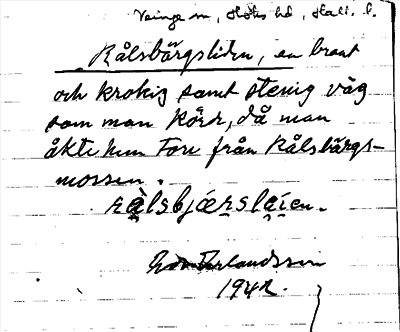 Veinge sn, Höks hd, Hall. l.
Rålsbärgsliden, en brant
och krokig samt stenig väg
som man körr, då man
åkte hem Torv från Rålsbärgs-
mossen.
rålsbjærslaien.
Erlandsson
1942.